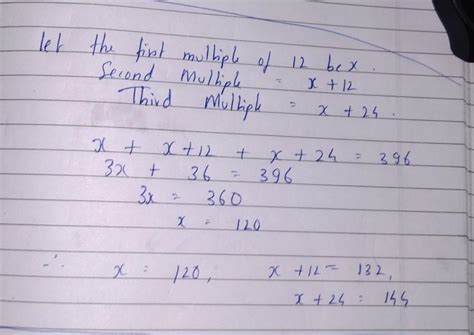 let the first multiple of 12 be x.
Second Multiple = x + 12
Third Multiple = x + 24.
x + x+12 + x + 24 = 396
3x + 36 = 396
3x = 360
x = 120
∴ x = 120, x + 12 = 132,
x + 24 = 144